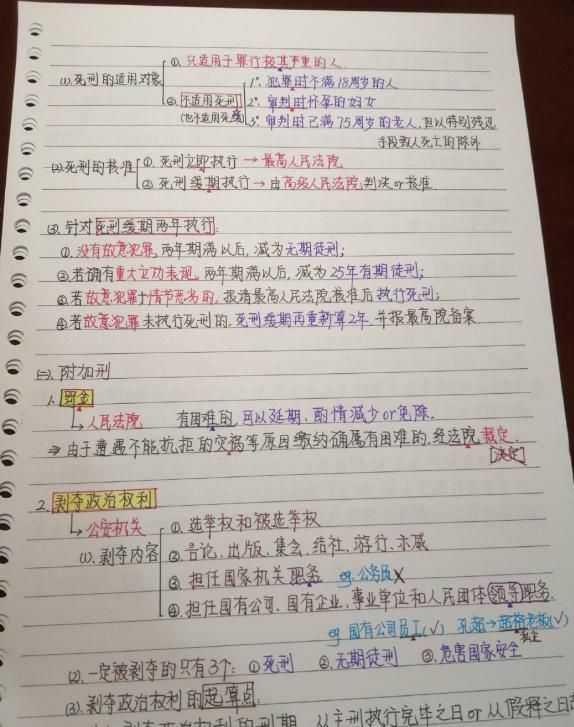 ①. 只适用于罪行极其严重的人
(1). 死刑的适用对象
1°. 犯罪时不满18周岁的人
②. 不适用死刑
2°. 审判时怀孕的妇女
(也不适用死缓)
3°. 审判时已满75周岁的老人, 但以特别残忍
手段致人死亡的除外
(2) 死刑的核准
①. 死刑立即执行 → 最高人民法院
②. 死刑缓期执行 → 由高级人民法院判决or核准
(3). 针对死刑缓期两年执行:
①. 没有故意犯罪, 两年期满以后, 减为无期徒刑;
②若确有重大立功表现, 两年期满以后, 减为25年有期徒刑;
③若故意犯罪+情节恶劣的, 报请最高人民法院核准后执行死刑;
④若故意犯罪未执行死刑的, 死刑缓期再重新算2年, 并报最高院备案
(二). 附加刑
1. 罚金
↳ 人民法院 有困难的, 可以延期、酌情减少or免除.
⇒ 由于遭遇不能抗拒的灾祸等原因缴纳确属有困难的, 经法院裁定.
[决定]
2. 剥夺政治权利
↳ 公安机关
①. 选举权和被选举权
(1). 剥夺内容
②. 言论, 出版, 集会, 结社, 游行, 示威
③. 担任国家机关职务 eg. 公务员✗
④. 担任国有公司、国有企业, 事业单位和人民团体领导职务.
eg 国有公司员工(√)
(2). 一定被剥夺的只有3个: ①死刑 ②. 无期徒刑 ③. 危害国家安全
(3). 剥夺政治权利的起算点
剥夺政治权利的刑期, 从主刑执行完毕之日or从假释之日起